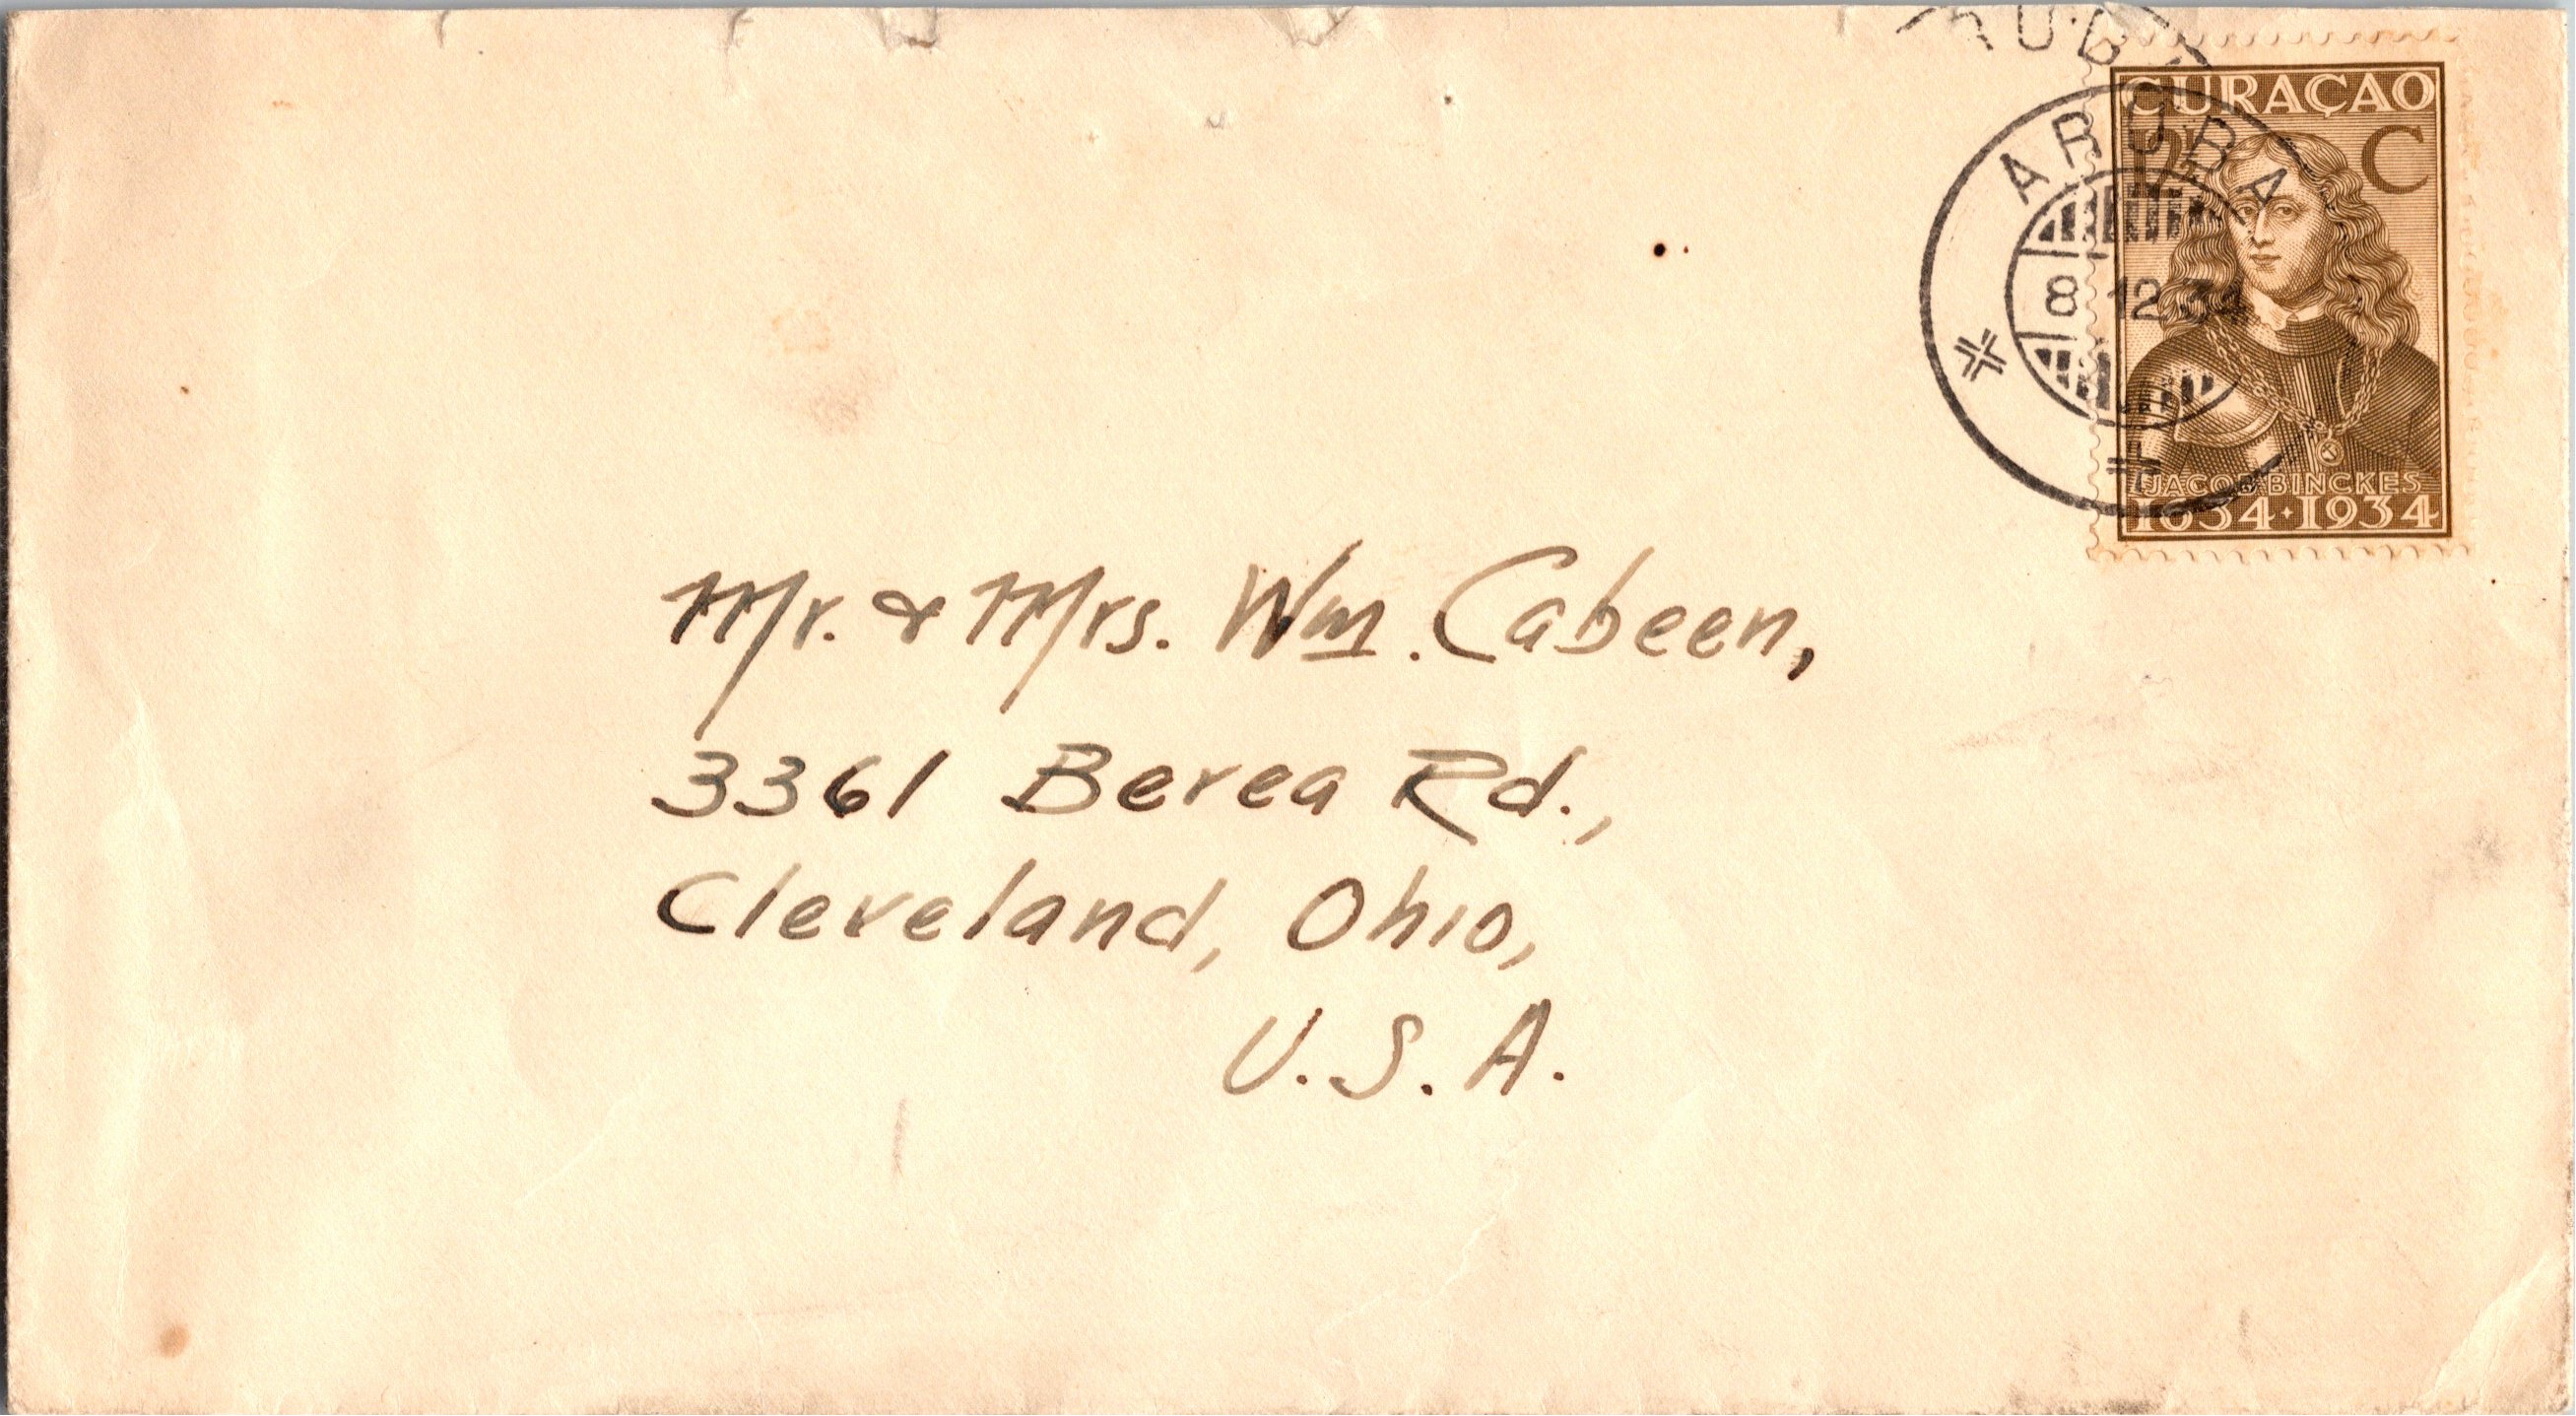 RUB
CURAÇAO
C
ARUBA
8 12 34
JACOB BINCKES
1634·1934
Mr. & Mrs. Wm. Cabeen,
3361 Berea Rd.,
Cleveland, Ohio,
U.S.A.